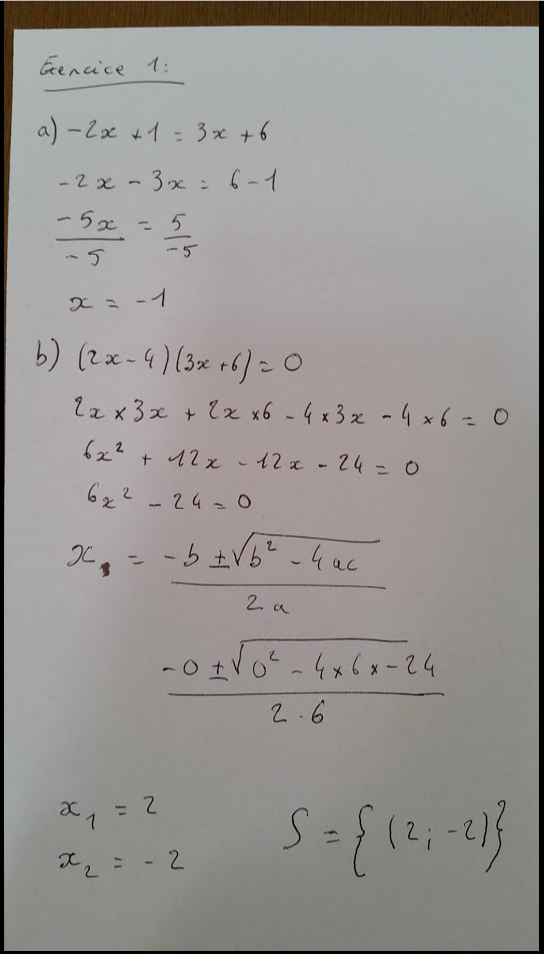 Exercice 1:
a) -2x + 1 = 3x + 6
-2x - 3x = 6 - 1
-5x/-5 = 5/-5
x = -1
b) (2x - 4)(3x + 6) = 0
2x × 3x + 2x × 6 - 4 × 3x - 4 × 6 = 0
6x² + 12x - 12x - 24 = 0
6x² - 24 = 0
x = (-b ± √(b² - 4ac))/(2a)
(-0 ± √(0² - 4 × 6 × -24))/(2 · 6)
x₁ = 2
x₂ = -2
S = {(2; -2)}